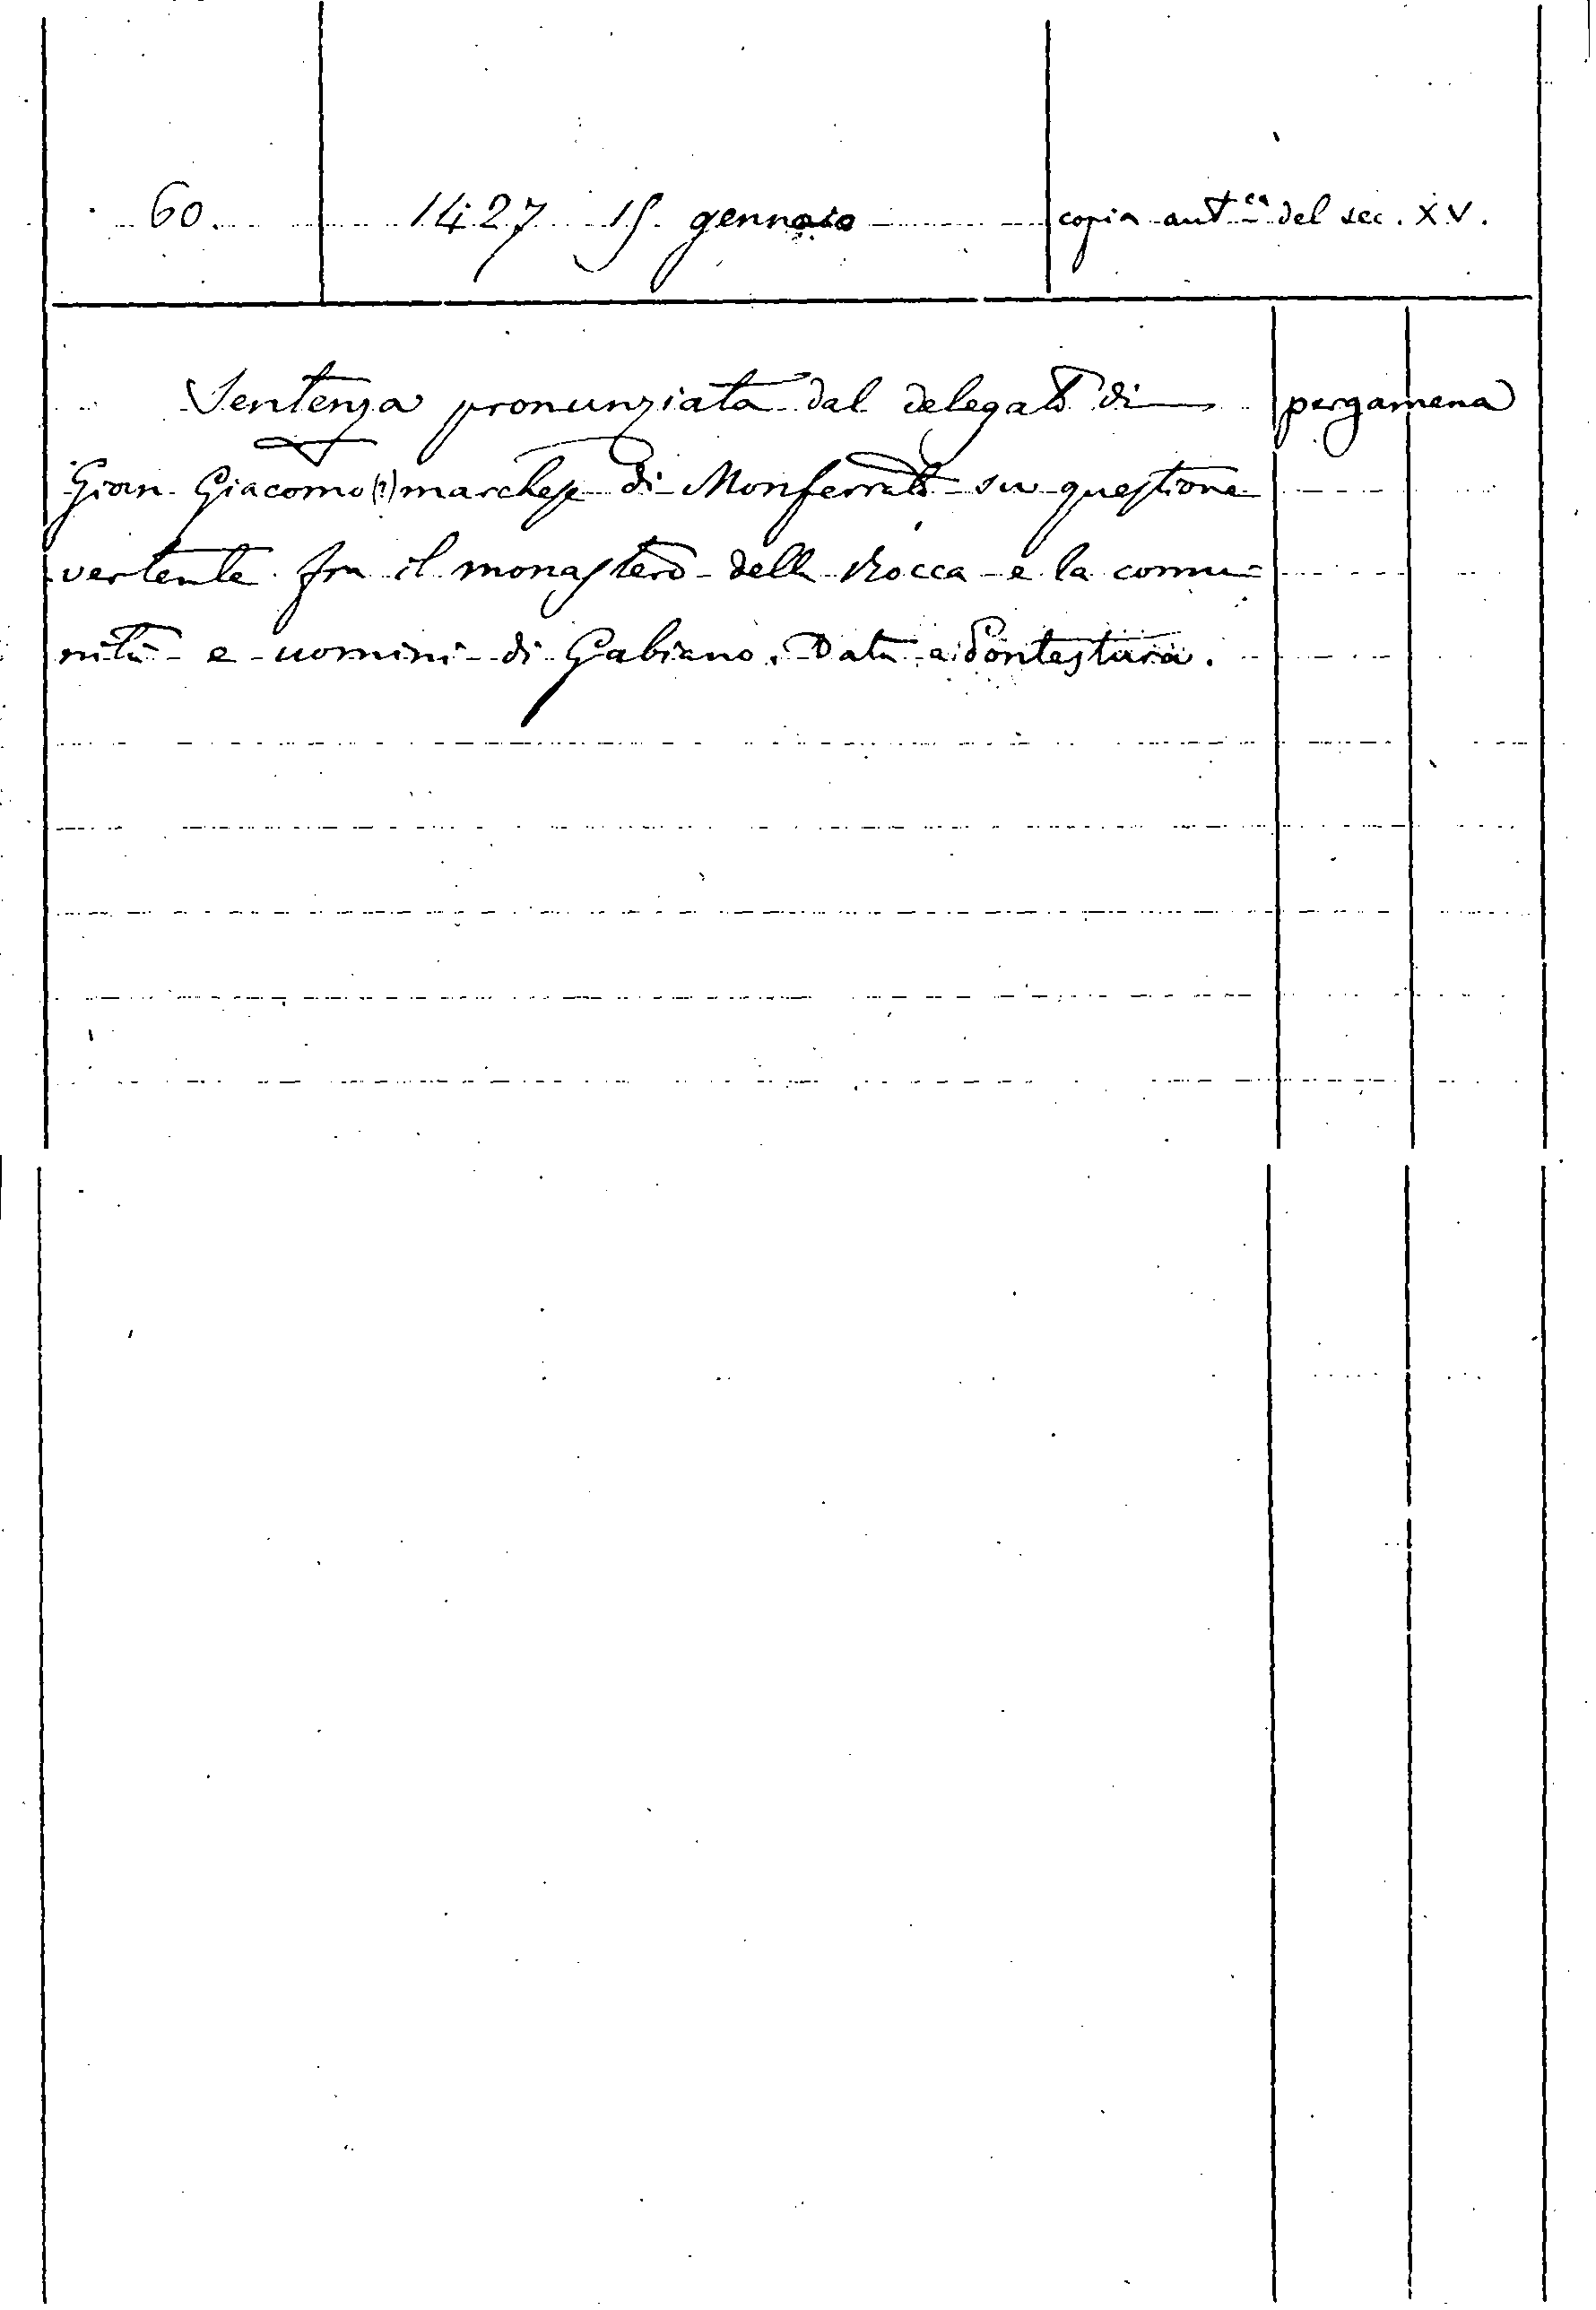 60. 1427 15 gennaio copia aut.ca del sec. XV.
Sentenza pronunziata dal delegato di pergamena
Gian Giacomo (?) marchese di Monferrato su questione
vertente fra il monastero della Rocca e la comu=
nità e uomini di Gabiano. Data a Pontestura.